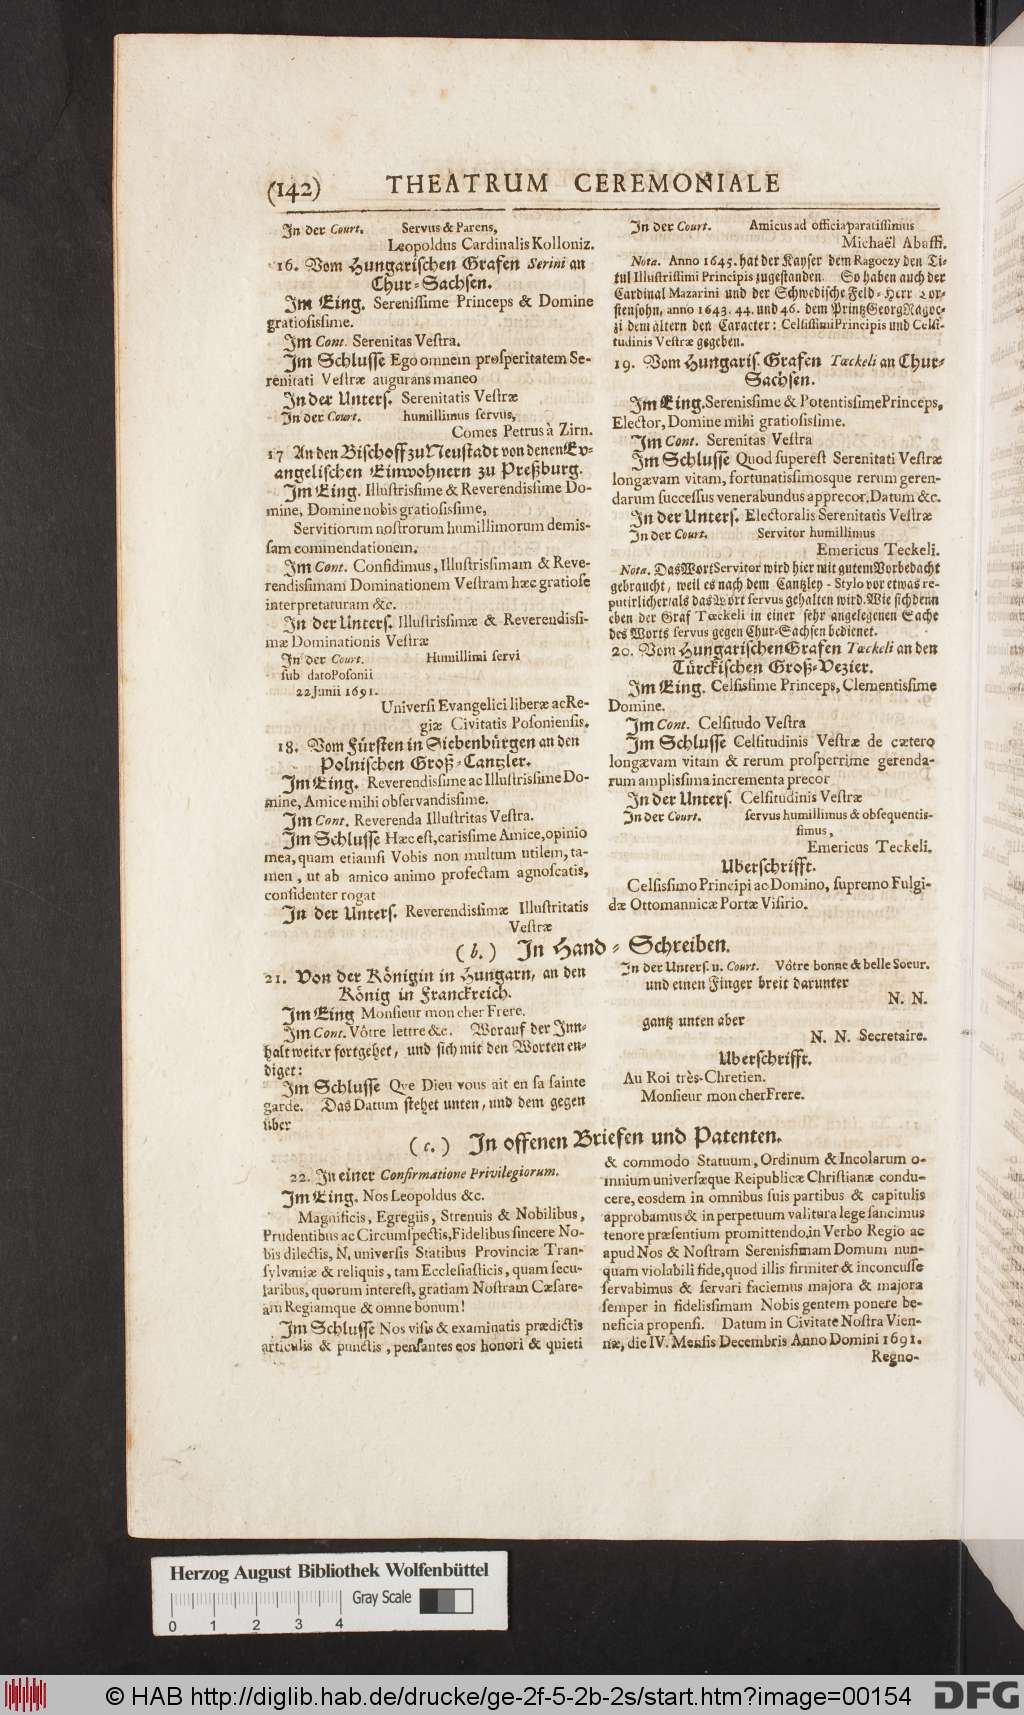 (142) THEATRUM CEREMONIALE
In der Court. Servus & Parens,
Leopoldus Cardinalis Kolloniz.
16. Vom Hungarischen Grafen Serini an
Chur-Sachsen.
Im Eing. Serenissime Princeps & Domine
gratiosissime.
Im Cont. Serenitas Vestra.
Im Schlusse Ego omnem prosperitatem Se-
renitati Vestræ augurans maneo
In der Unters. Serenitatis Vestræ
In der Court. humillimus servus,
Comes Petrus à Zirn.
17 An den Bischoff zu Neustadt von denen Ev-
angelischen Einwohnern zu Preßburg.
Im Eing. Illustrissime & Reverendissime Do-
mine, Domine nobis gratiosissime,
Servitiorum nostrorum humillimorum demis-
sam commendationem.
Im Cont. Confidimus, Illustrissimam & Reve-
rendissimam Dominationem Vestram hæc gratiose
interpretaturam &c.
In der Unters. Illustrissimæ & Reverendissi-
mæ Dominationis Vestræ
In der Court. Humillimi servi
sub dato Posonii
22 Junii 1691.
Universi Evangelici liberæ ac Re-
giæ Civitatis Posoniensis.
18. Vom Fürsten in Siebenbürgen an den
Polnischen Groß-Cantzler.
Im Eing. Reverendissime ac Illustrissime Do-
mine, Amice mihi observandissime.
Im Cont. Reverenda Illustritas Vestra.
Im Schlusse Hæc est, carissime Amice, opinio
mea, quam etiamsi Vobis non multum utilem, ta-
men, ut ab amico animo profectam agnoscatis,
confidenter rogat
In der Unters. Reverendissimæ Illustritatis
Vestræ
In der Court. Amicus ad officia paratissimus
Michaël Abaffi.
Nota. Anno 1645. hat der Kayser dem Ragoczy den Ti-
tul Illustrissimi Principis zugestanden. So haben auch der
Cardinal Mazarini und der Schwedische Feld-Herr Tor-
stensohn, anno 1643. 44. und 46. dem Printz Georg Ragoc-
zi dem ältern den Caracter: Celsissimi Principis und Celsi-
tudinis Vestræ gegeben.
19. Vom Hungaris. Grafen Tœckeli an Chur-
Sachsen.
Im Eing. Serenissime & Potentissime Princeps,
Elector, Domine mihi gratiosissime.
Im Cont. Serenitas Vestra
Im Schlusse Quod superest Serenitati Vestræ
longævam vitam, fortunatissimosque rerum geren-
darum successus venerabundus apprecor. Datum &c.
In der Unters. Electoralis Serenitatis Vestræ
In der Court. Servitor humillimus
Emericus Teckeli.
Nota. Das Wort Servitor wird hier mit gutem Vorbedacht
gebraucht, weil es nach dem Cantzley-Stylo vor etwas re-
putirlicher/als das Wort servus gehalten wird. Wie sich denn
eben der Graf Tœckeli in einer sehr angelegenen Sache
des Worts servus gegen Chur-Sachsen bedienet.
20. Vom Hungarischen Grafen Tœckeli an den
Türckischen Groß-Vezier.
Im Eing. Celsissime Princeps, Clementissime
Domine.
Im Cont. Celsitudo Vestra
Im Schlusse Celsitudinis Vestræ de cætero
longævam vitam & rerum prosperrime gerenda-
rum amplissima incrementa precor
In der Unters. Celsitudinis Vestræ
In der Court. servus humillimus & obsequentis-
simus,
Emericus Teckeli.
Uberschrifft.
Celsissimo Principi ac Domino, supremo Fulgi-
dæ Ottomannicæ Portæ Visirio.
(b.) In Hand-Schreiben.
21. Von der Königin in Hungarn, an den
König in Franckreich.
Im Eing Monsieur mon cher Frere.
Im Cont. Vôtre lettre &c. Worauf der Inn-
halt weiter fortgehet, und sich mit den Worten en-
diget:
Im Schlusse Qve Dieu vous ait en sa sainte
garde. Das Datum stehet unten, und dem gegen
über
In der Unters. u. Court. Vôtre bonne & belle Soeur.
und einen Finger breit darunter
N. N.
gantz unten aber
N. N. Secretaire.
Uberschrifft.
Au Roi très-Chretien.
Monsieur mon cher Frere.
(c.) In offenen Briefen und Patenten.
22. In einer Confirmatione Privilegiorum.
Im Eing. Nos Leopoldus &c.
Magnificis, Egregiis, Strenuis & Nobilibus,
Prudentibus ac Circumspectis, Fidelibus sincere No-
bis dilectis, N. universis Statibus Provinciæ Tran-
sylvaniæ & reliquis, tam Ecclesiasticis, quam secu-
laribus, quorum interest, gratiam Nostram Cæsare-
am Regiamque & omne bonum!
Im Schlusse Nos visis & examinatis prædictis
articulis & punctis, pensantes eos honori & quieti
& commodo Statuum, Ordinum & Incolarum o-
mnium universæque Reipublicæ Christianæ condu-
cere, eosdem in omnibus suis partibus & capitulis
approbamus & in perpetuum valitura lege sancimus
tenore præsentium promittendo, in Verbo Regio ac
apud Nos & Nostram Serenissimam Domum nun-
quam violabili fide, quod illis firmiter & inconcusse
servabimus & servari faciemus majora & majora
semper in fidelissimam Nobis gentem ponere be-
neficia propensi. Datum in Civitate Nostra Vien-
næ, die IV. Mensis Decembris Anno Domini 1691.
Regno-
Herzog August Bibliothek Wolfenbüttel
Gray Scale
0 1 2 3 4
© HAB http://diglib.hab.de/drucke/ge-2f-5-2b-2s/start.htm?image=00154
DFG